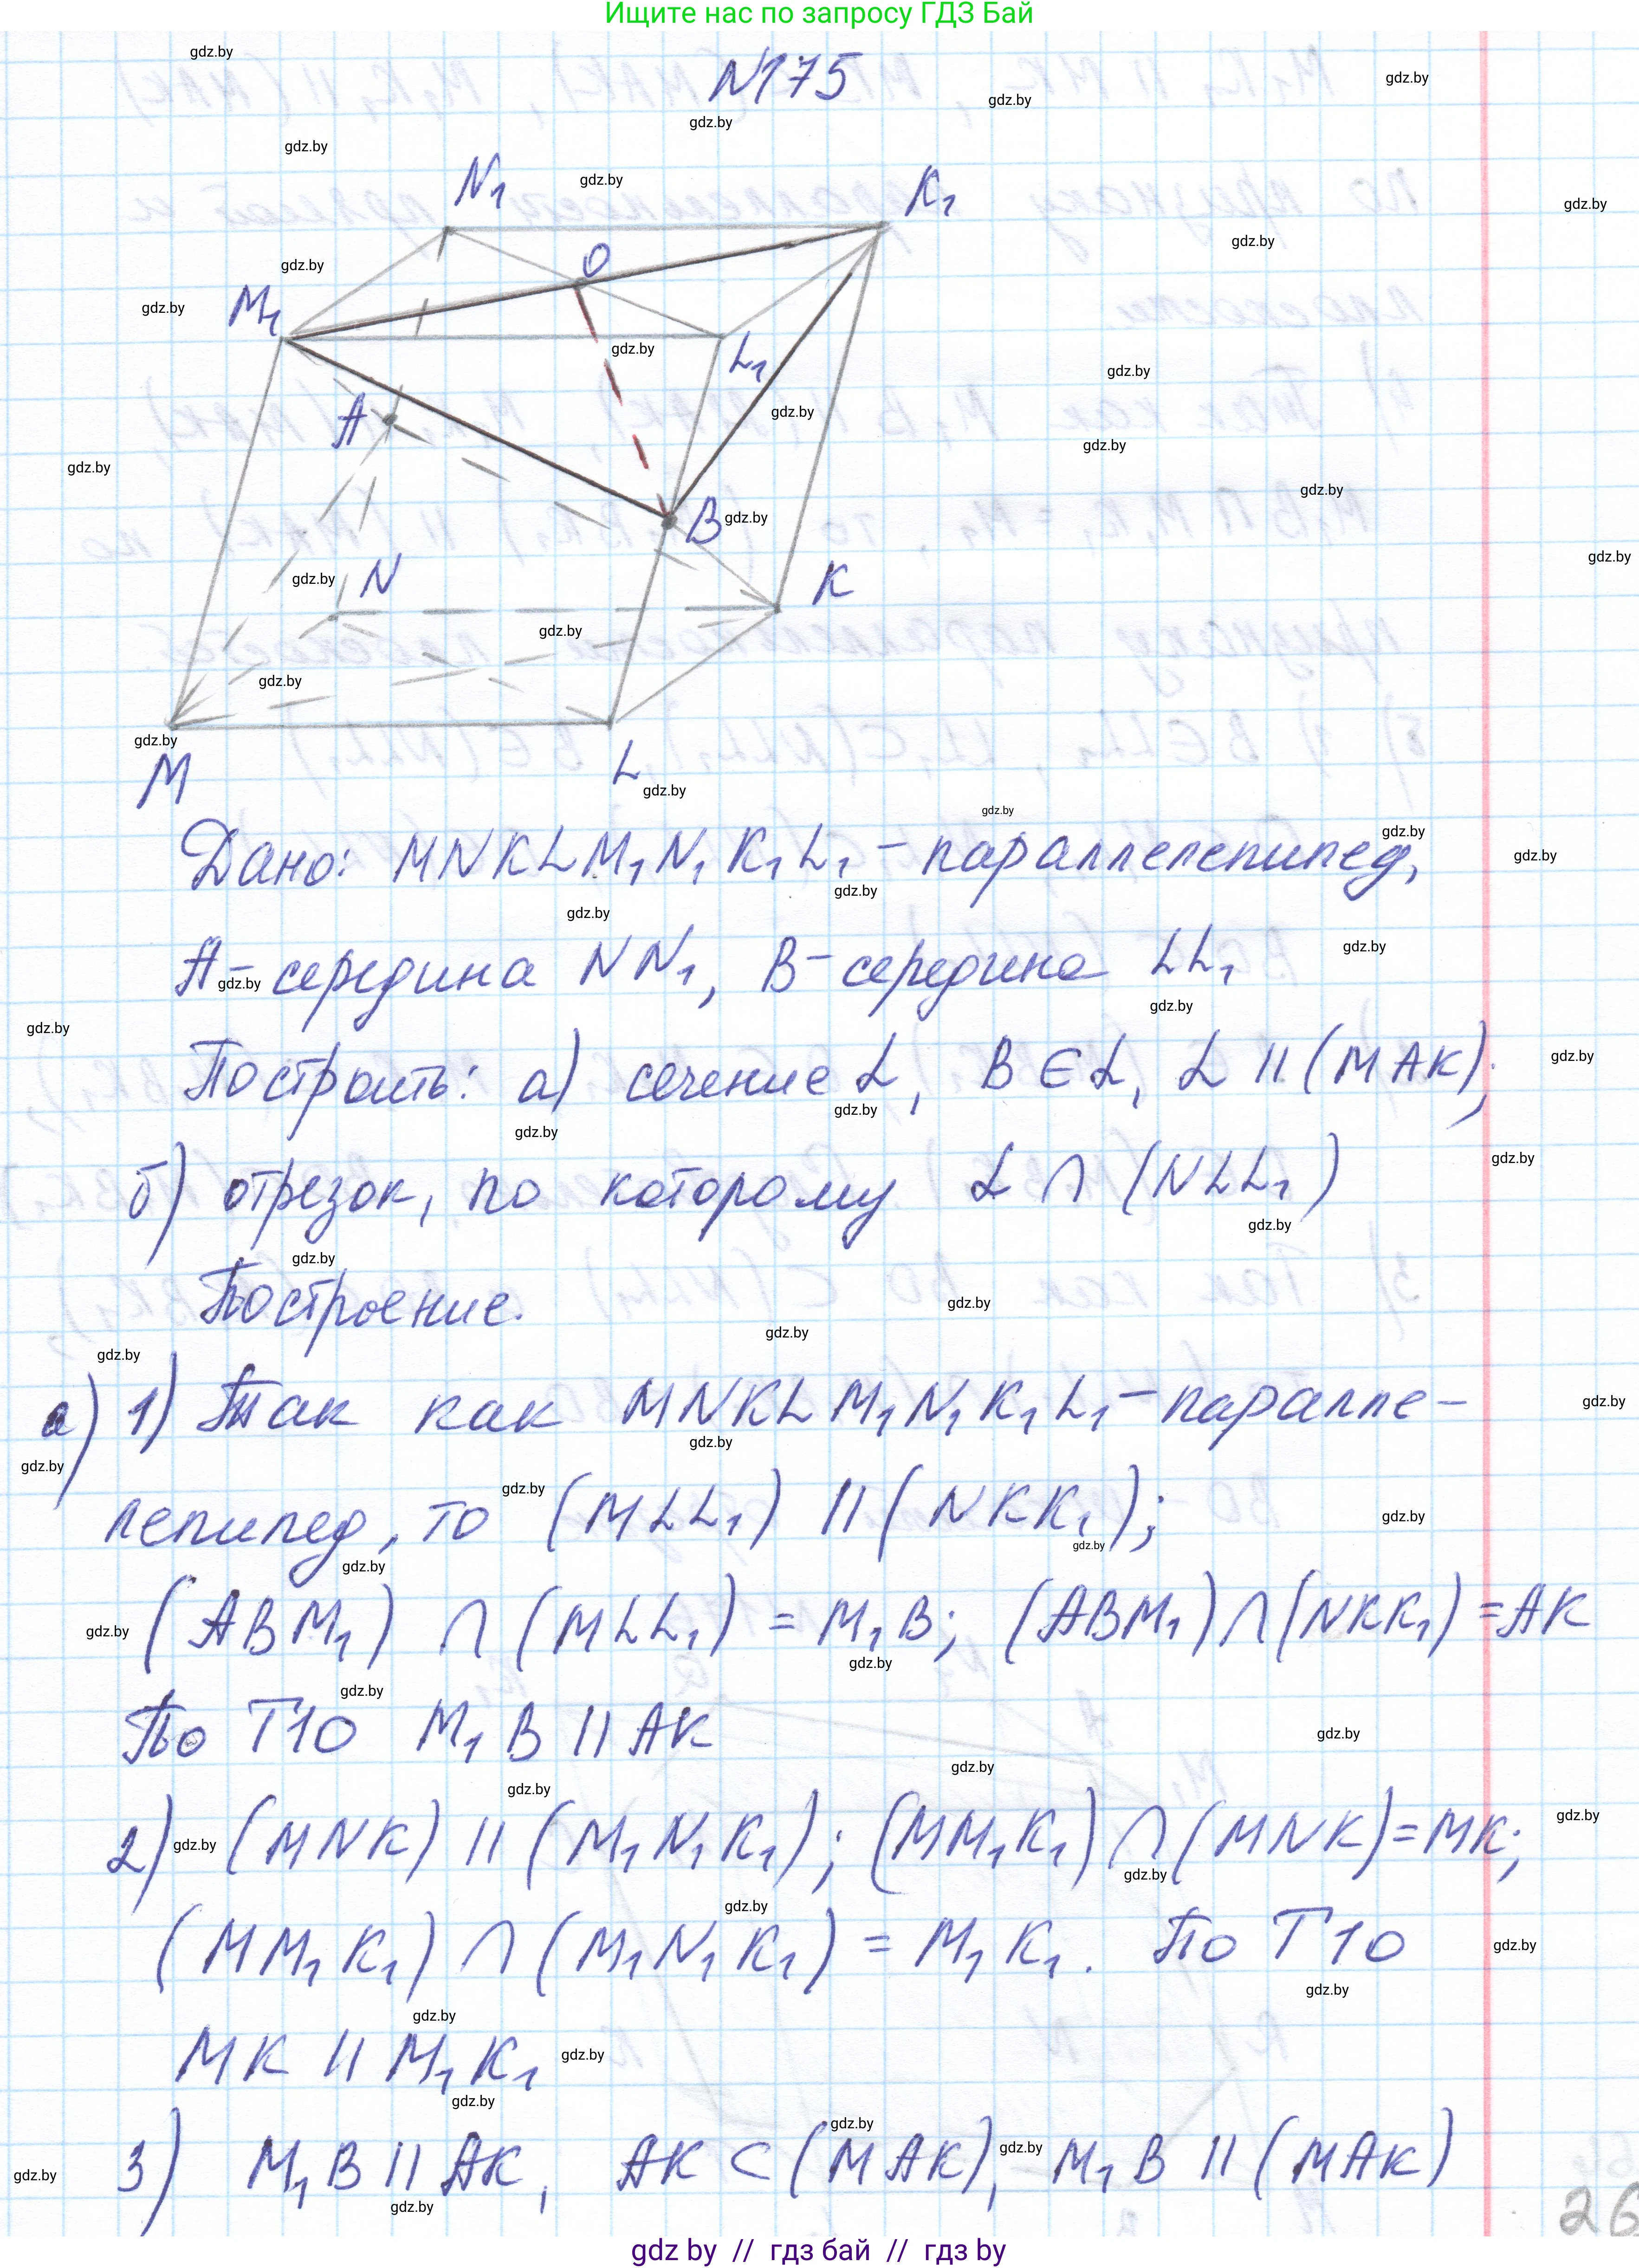 Ищите нас по запросу ГДЗ Бай
№175
N₁
K₁
O
M₁
L₁
A
B
N
K
M
L
Дано: MNKLM₁N₁K₁L₁ – параллелепипед,
A – середина NN₁, B – середина LL₁
Построить: а) сечение α, B ∈ α, α || (MAK);
б) отрезок, по которому α ∩ (NLL₁)
Построение.
а) 1) Так как MNKLM₁N₁K₁L₁ – паралле-
лепипед, то (MLL₁) || (NKK₁);
(ABM₁) ∩ (MLL₁) = M₁B; (ABM₁) ∩ (NKK₁) = AK
По Т10 M₁B || AK
2) (MNK) || (M₁N₁K₁); (MM₁K₁) ∩ (MNK) = MK;
(MM₁K₁) ∩ (M₁N₁K₁) = M₁K₁. По Т10
MK || M₁K₁
3) M₁B || AK, AK ⊂ (MAK), M₁B || (MAK)
26
gdz by // гдз бай // гдз by